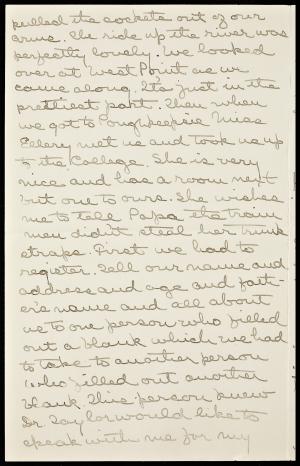 pulled the sockets out of our
arms. The ride up the river was
perfectly lovely. We looked
over at West Point as we
came along. It's just in the
prettiest part. Then when
we got to Poughkeepsie Miss
Ellery met us and took us up
to the College. She is very
nice and has a room next
but one to ours. She wishes
me to tell Papa the train
men didn't steal her trunk
straps. First we had to
register. Tell our name and
address and age and fath-
er's name and all about
us to one person who filled
out a blank which we had
to take to another person
who filled out another
blank. This person knew
Dr. Taylor would like to
speak with me for my